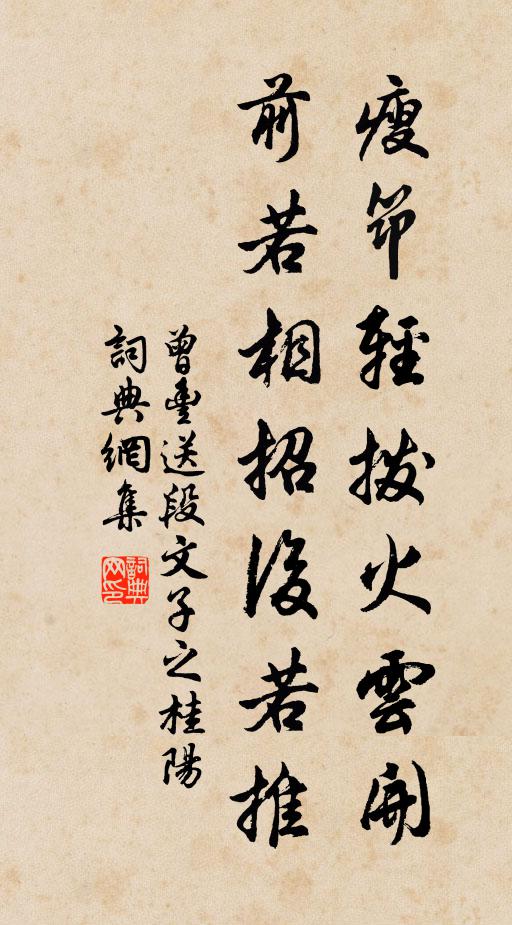 瘦筇輕撥火雲開
前若相招後若推
曾豐送段文子之桂陽
詞典網集
詞典
网印